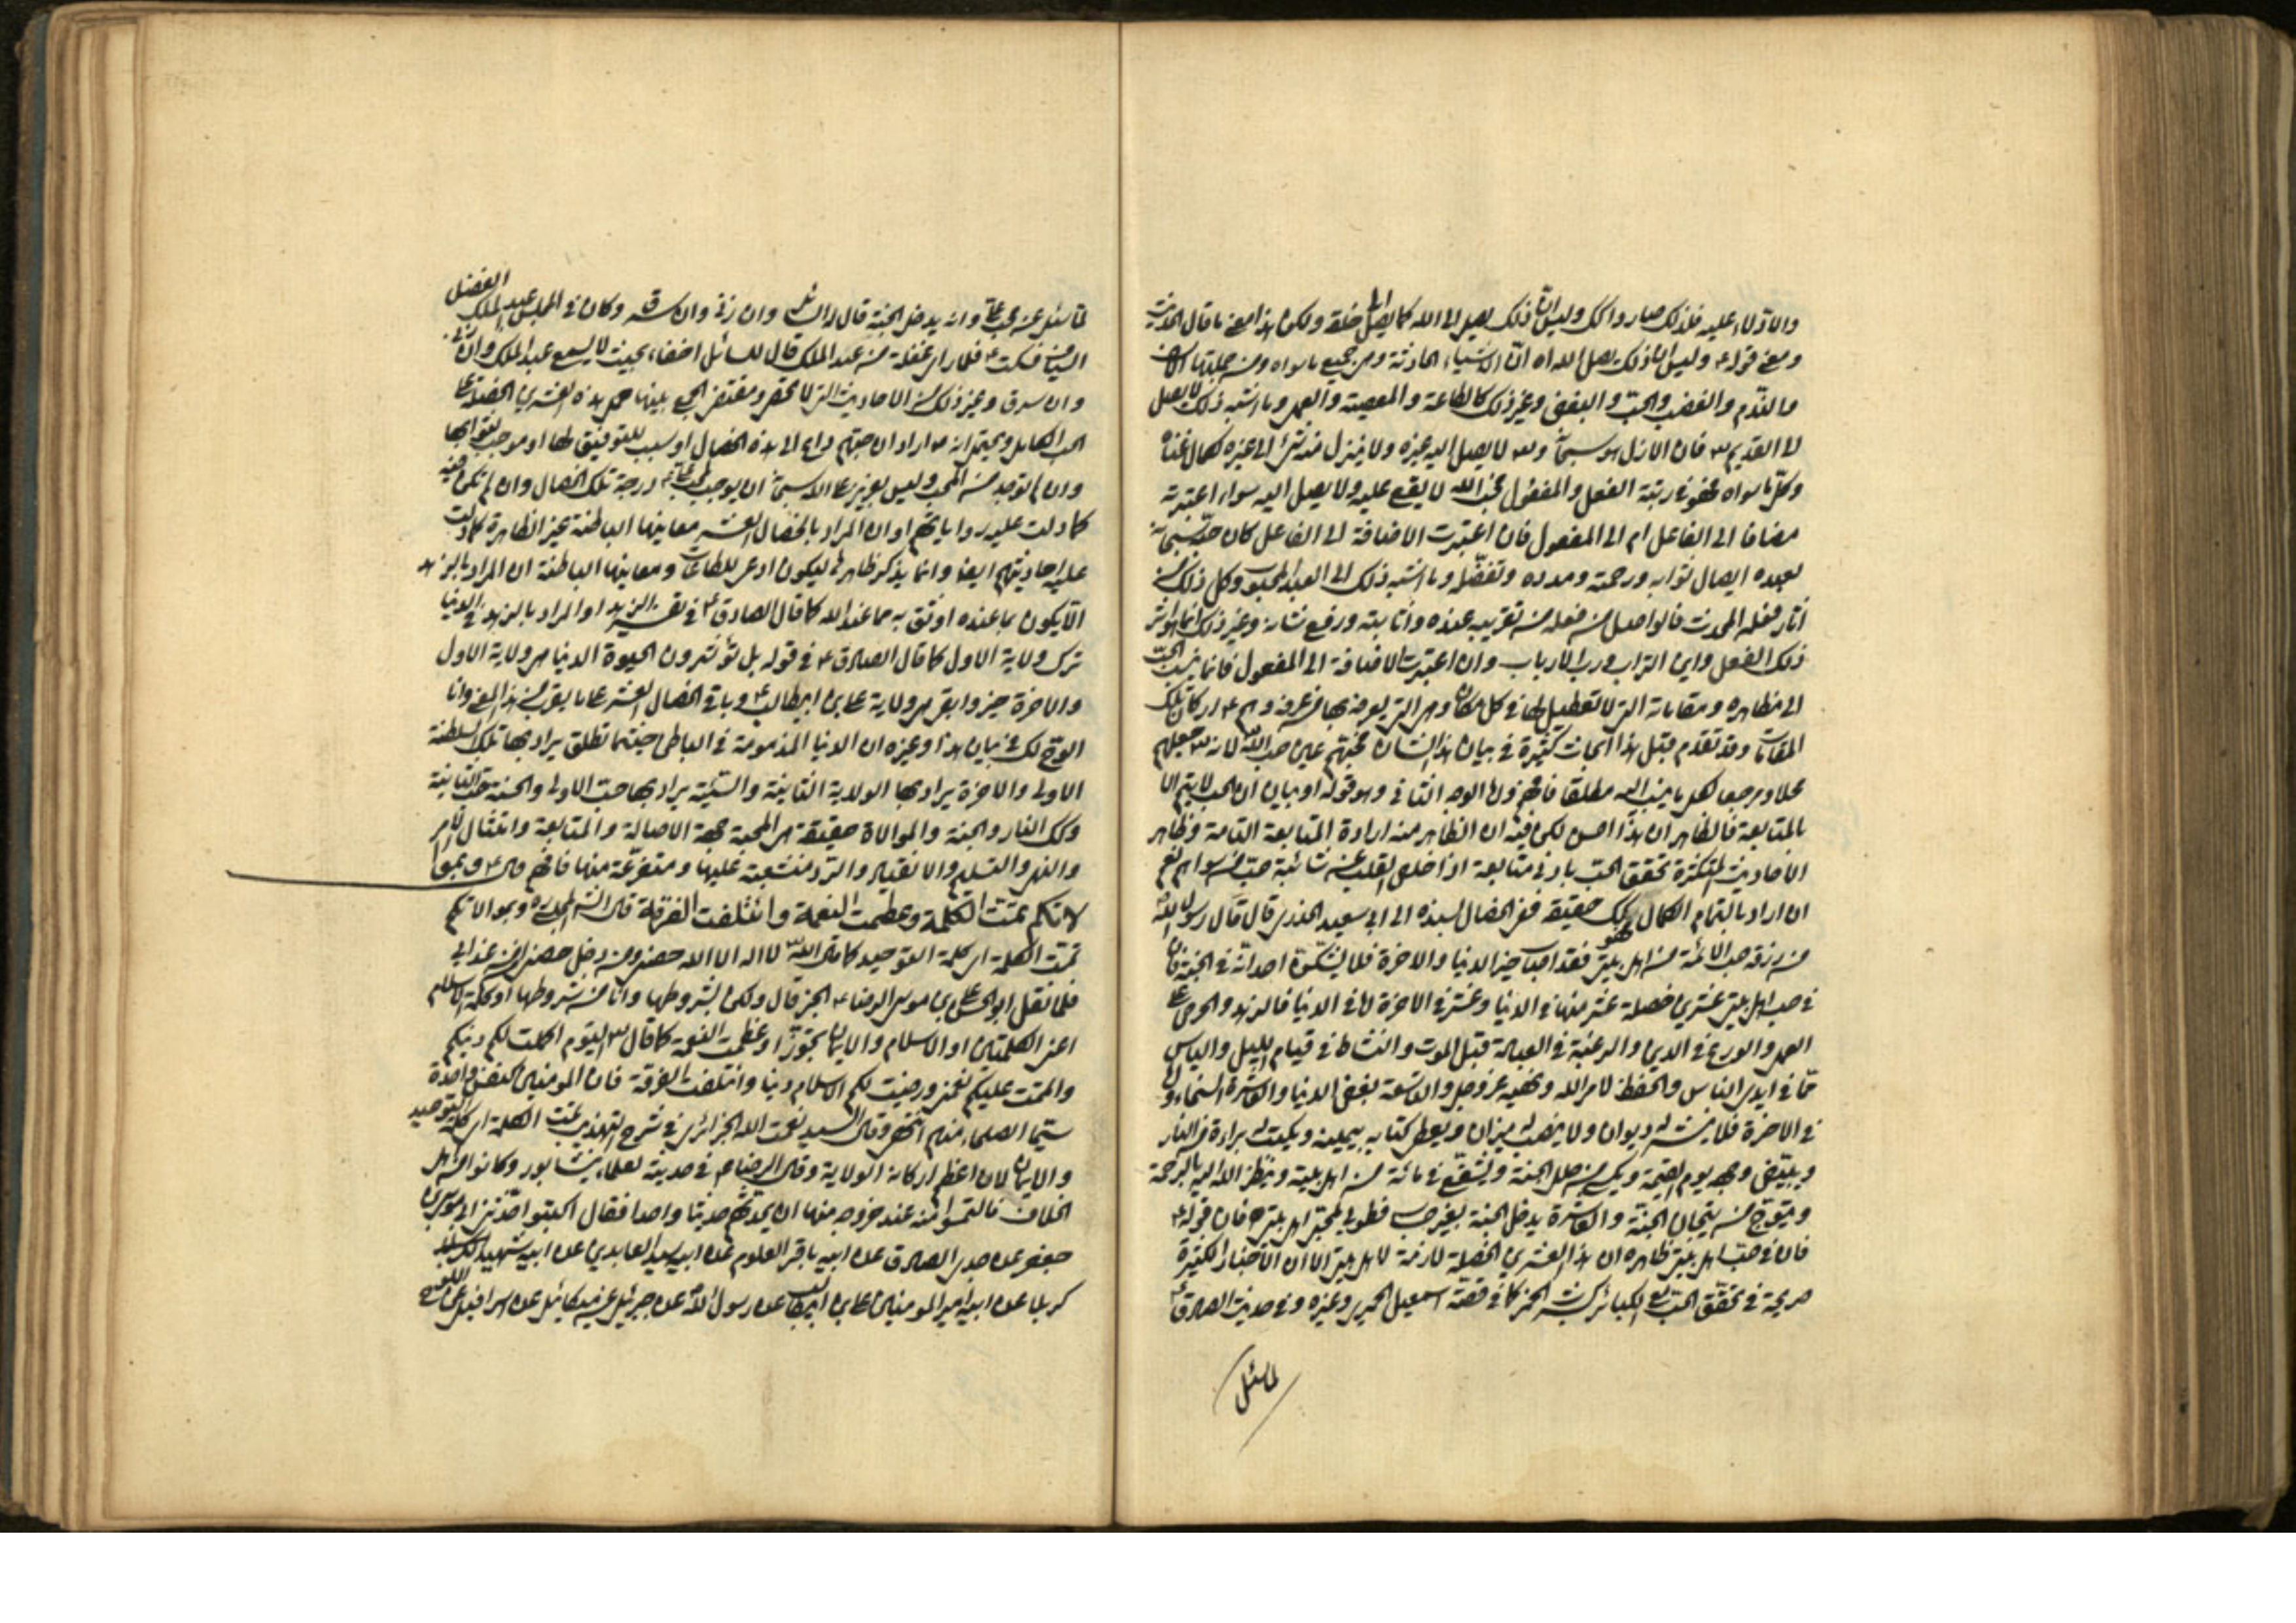 والاذلاء عليه فلذلك صاروا كك وليس ان ذلك يصل الى الله كما يصل الى خلقه ولكن هذا معنى ما قال الحديث
ومعنى قوله ع وليس ان ذلك يصل الى الله اه ان الاشياء الحادثة وهي جميع ما سواه ومن جملتها
والندم والغضب والحب والبغض وغير ذلك كالطاعة والمعصية والعمل وما اشبه ذلك لا يصل
الى القديم تع فان الازل هو سبحانه وتع لا يصل اليه غيره ولا ينزل منه شئ الى غيره لكمال غناه
وكل ما سواه فهو في رتبة الفعل والمفعول فحب الله لا يقع عليه ولا يصل اليه سواء اعتبرته
مضافا الى الفاعل ام الى المفعول فان اعتبرت الاضافة الى الفاعل كان حبه سبحانه
لعبده ايصال ثوابه ورحمته ومدده وتفضله وما اشبه ذلك الى العبد المحبوب وكل ذلك من
آثار فعله المحدث فالواصل من فعله من تقريبه عنده واثابته ورفع شانه وغير ذلك انما هو اثر
ذلك الفعل واين التراب ورب الارباب وان اعتبرت الاضافة الى المفعول فانما ينسب الحب
الى مظاهره ومقاماته التي لا تعطيل لها في كل مكان وهي التي يعرفه بها من عرفه وهم ع اركان تلك
المقامات وقد تقدم قبل هذا ابحاث كثيرة في بيان هذا الشان فحبهم عين حب الله لانه تع جعلهم
محلا ومرجعا لكل ما ينسب اليه مطلقا فافهم واما الوجه الثاني وهو قوله او بيان ان الحب لا يتم الا
بالمتابعة فالظاهر ان هذا احسن لكن فيه ان الظاهر منه ارادة المتابعة التامة وظاهر
الاحاديث المتكثرة تحقق الحب بادنى متابعة اذا خلص القلب من شائبة حب من سواهم نعم
ان اراد بالتمام الكمال فهو كك حقيقة ففي الخصال بسنده الى ابي سعيد الخدري قال قال رسول الله ص
من رزقه حب الائمة من اهل بيتي فقد اصاب خير الدنيا والاخرة فلا يشكن احد انه في الجنة فان
في حب اهل بيتي عشرين خصلة عشر منها في الدنيا وعشر في الاخرة اما في الدنيا فالزهد والحرص على
العمل والورع في الدين والرغبة في العبادة قبل الموت والنشاط في قيام الليل والياس
مما في ايدي الناس والحفظ لامر الله ونهيه عز وجل والتاسعة بغض الدنيا والعاشرة السخاء واما
في الاخرة فلا ينشر له ديوان ولا ينصب له ميزان ويعطى كتابه بيمينه ويكتب له براءة من النار
ويبيض وجهه يوم القيمة ويكسى من حلل الجنة ويشفع في مائة من اهل بيته وينظر الله اليه بالرحمة
ويتوج من تيجان الجنة والعاشرة يدخل الجنة بغير حساب فطوبى لمحبي اهل بيتي فان قوله ص
فان في حب اهل بيتي ظاهره ان هذه العشرين الخصلة لازمة لاهل بيتي الا ان الاخبار الكثيرة
صريحة في تحقق الحب مع الكبائر كشرب الخمر كما في قصة اسمعيل الحميري وغيره وفي حديث الصادق ع
لما سئل
لما سئل عن محب علي ع وانه يدخل الجنة قال له السائل وان زنى وان سرق وكان في المجلس عبد الملك الفضل
فسكت ع فلما راى غفلة من عبد الملك قال للسائل اخفاء بحيث لا يسمع عبد الملك وان زنى
وان سرق وغير ذلك من الاحاديث التي لا تحصر ومقتضى الجمع بينها حمل هذه العشرين الخصلة على
الحب الكامل ويحتمل انه ص اراد ان حبهم داع الى هذه الخصال او سبب للتوفيق لها او موجب لثوابها
وان لم توجد من المحب وليس بعزيز على الله سبحانه ان يوجب لمحب علي ع درجة تلك الخصال وان لم تكن فيه
كما دلت عليه رواياتهم او ان المراد بالخصال العشر معانيها الباطنة غير الظاهرة كما دلت
عليه احاديثهم ايضا وانما يذكر ظاهرها ليكون ادعى للطاعات ومعانيها الباطنة ان المراد بالزهد
الا يكون بما عنده اوثق به مما عند الله كما قال الصادق ع في تفسير الزهد او المراد بالزهد في الدنيا
ترك ولاية الاول كما قال الصادق ع في قوله بل تؤثرون الحيوة الدنيا هي ولاية الاول
والاخرة خير وابقى هي ولاية علي بن ابيطالب ع وباقي الخصال العشر على ما يقرب من هذا المعنى وانا
الوح لك في بيان هذا وغيره ان الدنيا المذمومة في الباطن حيثما تطلق يراد بها تلك السلطنة
الاولى والاخرة يراد بها الولاية الثانية والسيئة يراد بها حب الاولى والحسنة حب الثانية
وكك النار والجنة والموالاة حقيقة هي المحبة بجهة الاصالة والمتابعة وامتثال الامر
والنهي والتسليم والانقياد والرد منشعبة عليها ومتفرعة منها فافهم قال ع وبموا
لاتكم تمت الكلمة وعظمت النعمة وائتلفت الفرقة قال الشارح المجلسي ره وبموالاتكم
تمت الكلمة اي كلمة التوحيد كما قال الله تع لا اله الا الله حصني ومن دخل حصني امن من عذابي
فلما نقل ابو الحسن علي بن موسى الرضا ع الخبر قال ولكن بشروطها وانا من شروطها او كلمة الاسلام
اعني الكلمتين او الاسلام والايمان تجوزا وعظمت النعمة كما قال تع اليوم اكملت لكم دينكم
واتممت عليكم نعمتي ورضيت لكم الاسلام دينا وائتلفت الفرقة فان المؤمنين كنفس واحدة
سيما الصلحاء منهم انتهى وقال السيد نعمت الله الجزائري في شرح التهذيب تمت الكلمة اي كلمة التوحيد
والايمان لان اعظم اركانه الولاية وقال الرضا ع في حديثه لعلماء نيشابور وكانوا من اهل
الخلاف فالتمسوا منه عند خروجه منها ان يحدثهم حديثا واحدا فقال اكتبوا حدثني ابي موسى بن
جعفر عن جدي الصادق عن ابيه باقر العلوم عن ابيه سيد العابدين عن ابيه شهيد
كربلا عن ابيه امير المؤمنين علي بن ابيطالب عن رسول الله ص عن جبرئيل عن ميكائيل عن اسرافيل عن اللوح